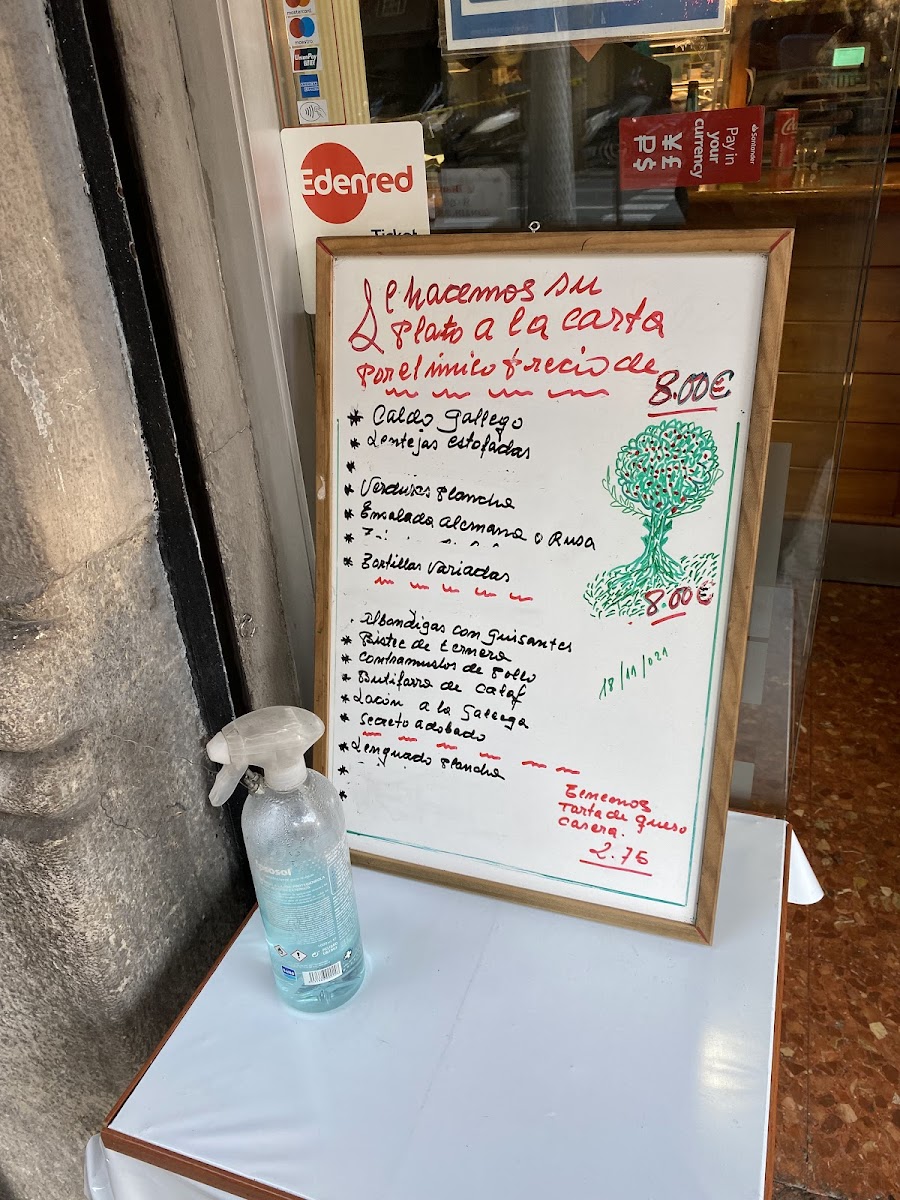 mastercard
maestro
UnionPay
Edenred
Ticket
Santander
Pay in
your
currency
¥£
₽$
Le hacemos su
Plato a la carta
Por el unico Precio de
8.00€
* Caldo gallego
* Lentejas estofadas
*
* Verduras Plancha
* Ensalada alemana o Rusa
*
* Tortillas variadas
8.00€
. Albondigas con guisantes
* Bistec de ternera
* Contramuslos de Pollo
* Butifarra de Calaf
* Lacón a la Gallega
* Secreto adobado
* Lenguado Plancha
*
*
18/11/021
Tenemos
Tarta de queso
Casera.
2.75